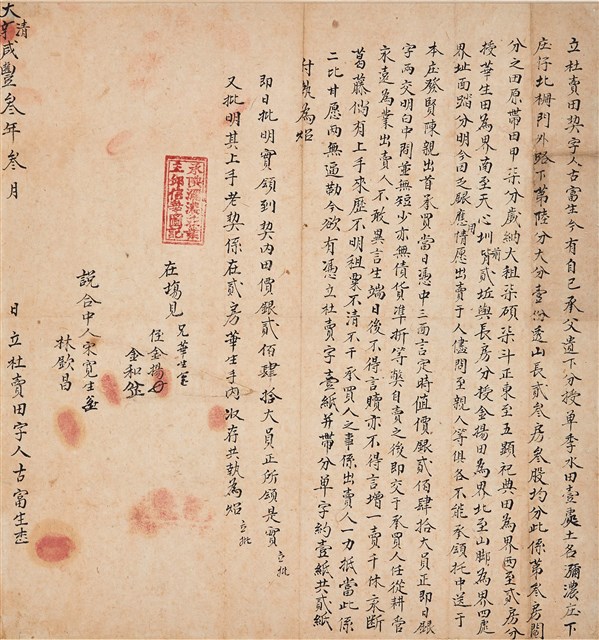 立杜賣田契字人古富生今有自己承父遺下分授單季水田壹處土名瀰濃庄下
庄仔北柵門外路下第陸分大分壹份透山長貳叁房叁股均分此係第叁房鬮
分之田原帶田甲柒分歲納大租柒碩柒斗正東至五顯祀典田為界西至貳房分
授華生田為界南至天心圳背貳坵與長房分授金揚田為界北至山腳為界四處
界址面踏分明今因乏銀應用情愿出賣于人儘問至親人等俱各不能承領托中送于
本庄發賢陳親出首承買當日憑中三面言定時值價銀貳佰肆拾大員正即日銀
字兩交明白中間並無短少亦無債貨準折等獘自賣之後即交于承買人任從耕管
永遠為業出賣人不敢異言生端日後不得言贖亦不得言增一賣千休永斷
葛藤倘有上手來歷不明租票不清不干承買人之事係出賣人一力抵當此係
二比甘愿兩無逼勒今欲有憑立杜賣字壹紙并帶分單字約壹紙共貳紙
付執為炤
即日批明實領到契內田價銀貳佰肆拾大員正所領是實 立批
又批明其上手老契係在貳房華生手內收存共執為炤 立批
在塲見 兄華生
侄金揚
金和
說合中人宋寬生
林欽昌
大清咸豐叁年叁月 日立杜賣田字人古富生